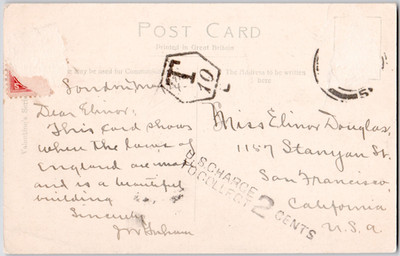 POST CARD
Printed in Great Britain
may be used for Communication
The Address to be written here
T
10
London,
Dear Elinor;
This card shows
when the laws of
England are made
and is a beautiful
building
Sincerely
Miss Elinor Douglas,
1157 Stanyan St.
San Francisco,
California
U.S.A
DISCHARGE
TO COLLECT 2 CENTS